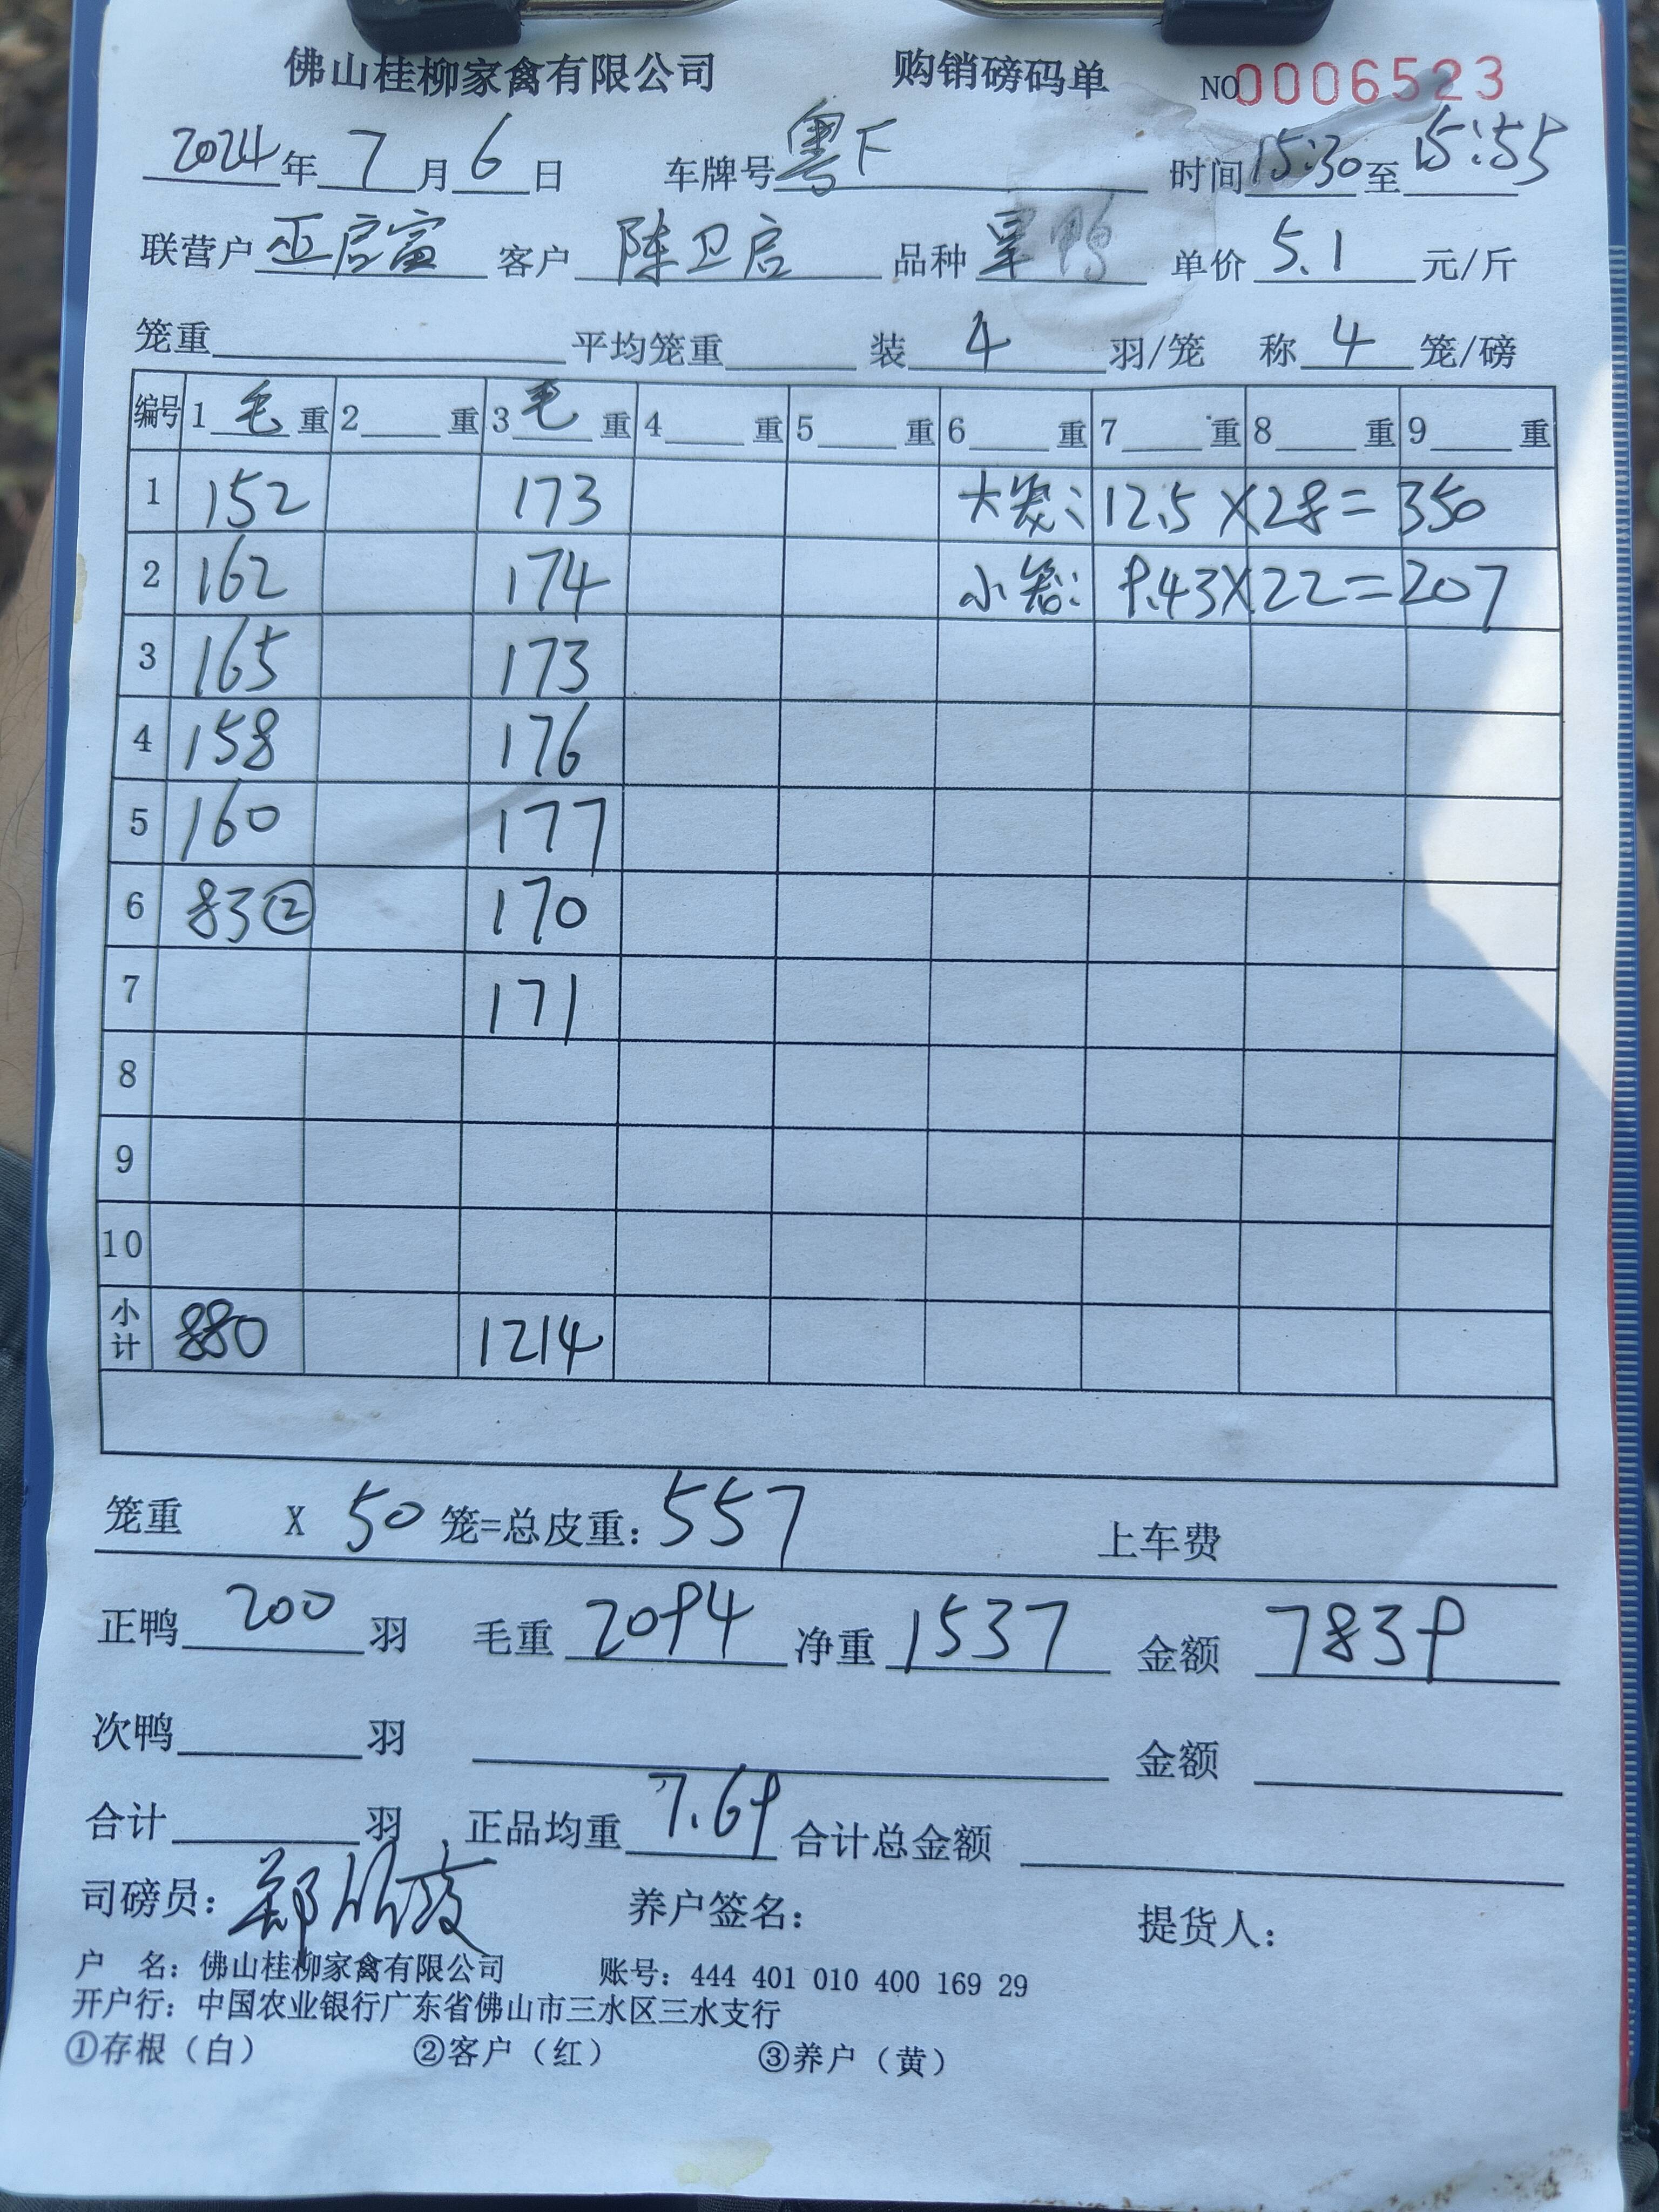 佛山桂柳家禽有限公司 购销磅码单 NO0006523
2024年7月6日 车牌号粤F 时间15:30至15:55
联营户巫启富 客户陈卫启 品种鸭 单价5.1元/斤
笼重 平均笼重 装4羽/笼 称4笼/磅
编号 1毛重 2重 3毛重 4重 5重 6重 7重 8重 9重
1 152 173 大笼: 12.5×28=350
2 162 174 小笼: 9.43×22=207
3 165 173
4 158 176
5 160 177
6 83② 170
7 171
8
9
10
小计 880 1214
笼重 X 50笼=总皮重:557 上车费
正鸭200羽 毛重2094 净重1537 金额7839
次鸭 羽 金额
合计 羽 正品均重7.69 合计总金额
司磅员:郑 养户签名: 提货人:
户 名:佛山桂柳家禽有限公司 账号:444 401 010 400 169 29
开户行:中国农业银行广东省佛山市三水区三水支行
①存根(白) ②客户(红) ③养户(黄)